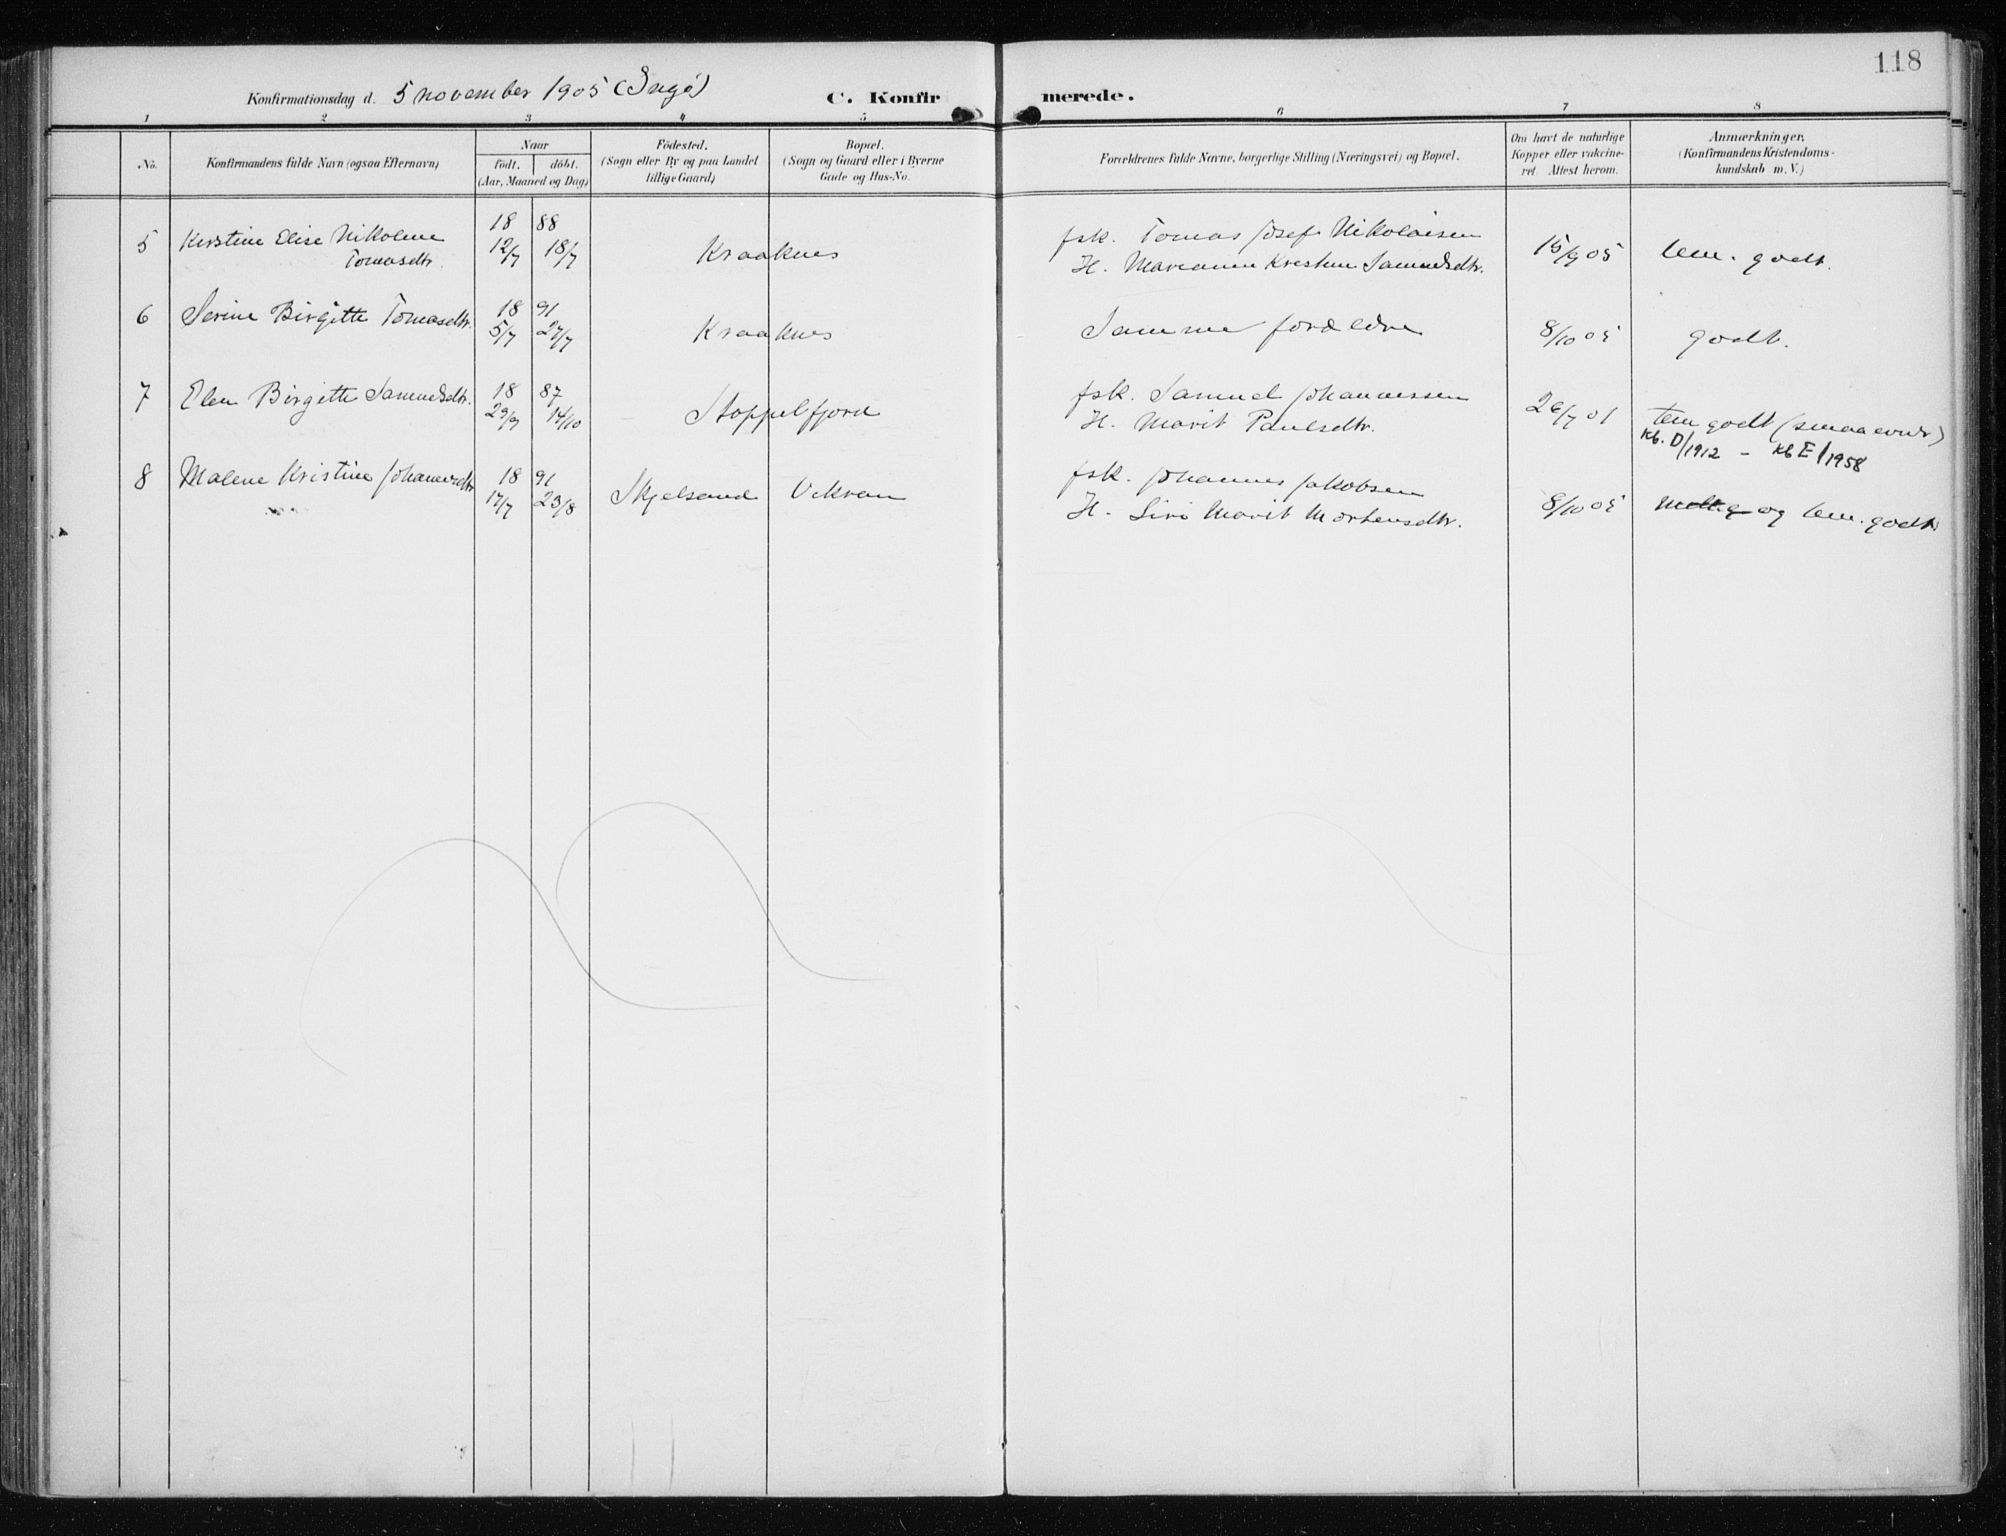 118
Konfirmationsdag d. 5 november 1905 (Ingö) C. Konfirmerede.
1 2 3 4 5 6 7 8
No. Konfirmandens fulde Navn (ogsaa Efternavn) Naar födt. döbt. (Aar, Maaned og Dag)
Födested. (Sogn eller By og paa Landet tillige Gaard)
Bopæl. (Sogn og Gaard eller i Byerne Gade og Hus-No.
Forældrenes fulde Navne, borgerlige Stilling (Næringsvei) og Bopæl.
Om havt de naturlige Kopper eller vakcineret. Attest herom.
Anmærkninger. (Konfirmandens Kristendomskundskab m. V.)
5 Kirstine Elise Nikoline 18 88 fsk. Tomas Josef Nikolaisen
Tomasdtr. 12/7 18/7 Kraaknes H. Marianne Kristine Samuelsdtr. 15/9 05 tem. godt.
6 Serine Birgitte Tomasdtr. 18 91
5/7 27/7 Kraaknes Samme forældre 8/10 05 godt.
7 Elen Birgitte Samuelsdtr. 18 87 fsk. Samuel Johannessen
29/9 14/10 Stoppelfjord H. Marit Paulsdtr. 26/7 01 tem godt (smaa evner)
Kb. D/1912 - Kb E/1958
8 Malene Kristine Johannesdtr 18 91 fsk. Johannes Jakobsen
17/7 23/8 Skjelsand Vikran H. Siri Marit Mortensdtr. 8/10 05 og tem. godt